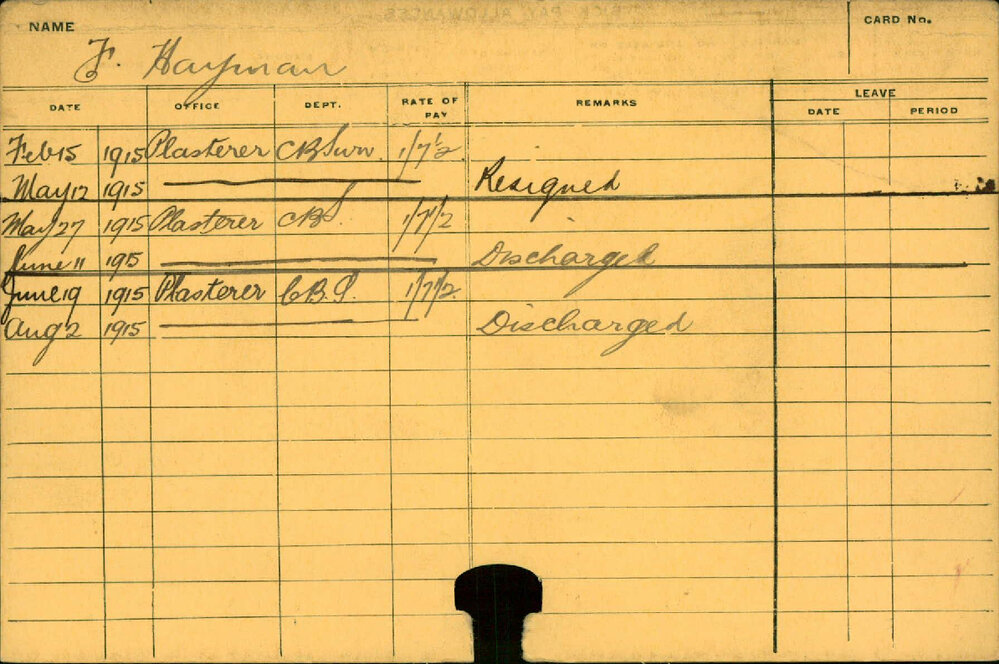 NAME
CARD No.
F. Hayman
DATE OFFICE DEPT. RATE OF PAY REMARKS LEAVE
DATE PERIOD
Feb 15 1915 Plasterer CBSurv. 1/7½
May 12 1915 Resigned
May 27 1915 Plasterer CBS. 1/7½
June 11 1915 Discharged
June 19 1915 Plasterer C.B.S. 1/7½
Aug 2 1915 Discharged